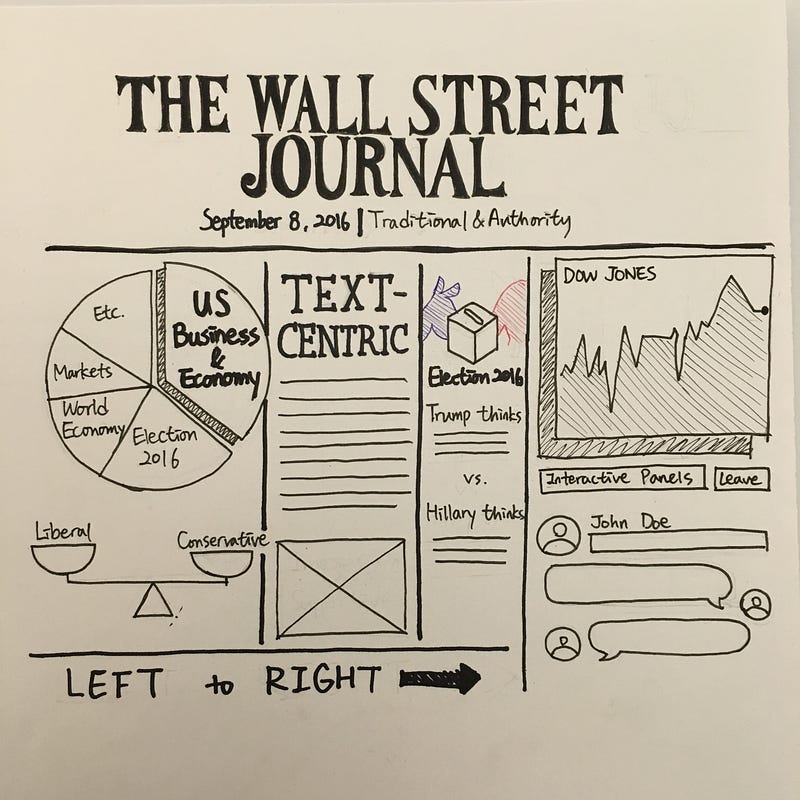 THE WALL STREET
JOURNAL
September 8, 2016 | Traditional & Authority
Etc.
US
Business
&
Economy
Markets
World
Economy
Election
2016
Liberal
Conservative
TEXT-
CENTRIC
Election 2016
Trump thinks
vs.
Hillary thinks
DOW JONES
Interactive Panels
Leave
John Doe
LEFT to RIGHT